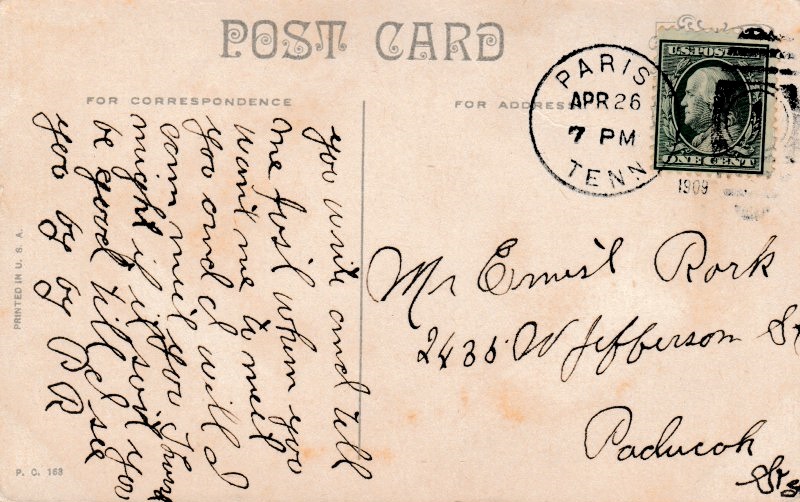 POST CARD
FOR CORRESPONDENCE
FOR ADDRESS
PARIS
APR 26
7 PM
TENN
1909
U.S. POST
ONE CENT
you write and tell
me Just when you
want me to meet
you and I will I
can meet you Thurs
might if it suit you
be good till I see
you by by B R
Mr Ernest Rork
2435 W Jefferson St
Paducah
PRINTED IN U. S. A.
P. C. 163